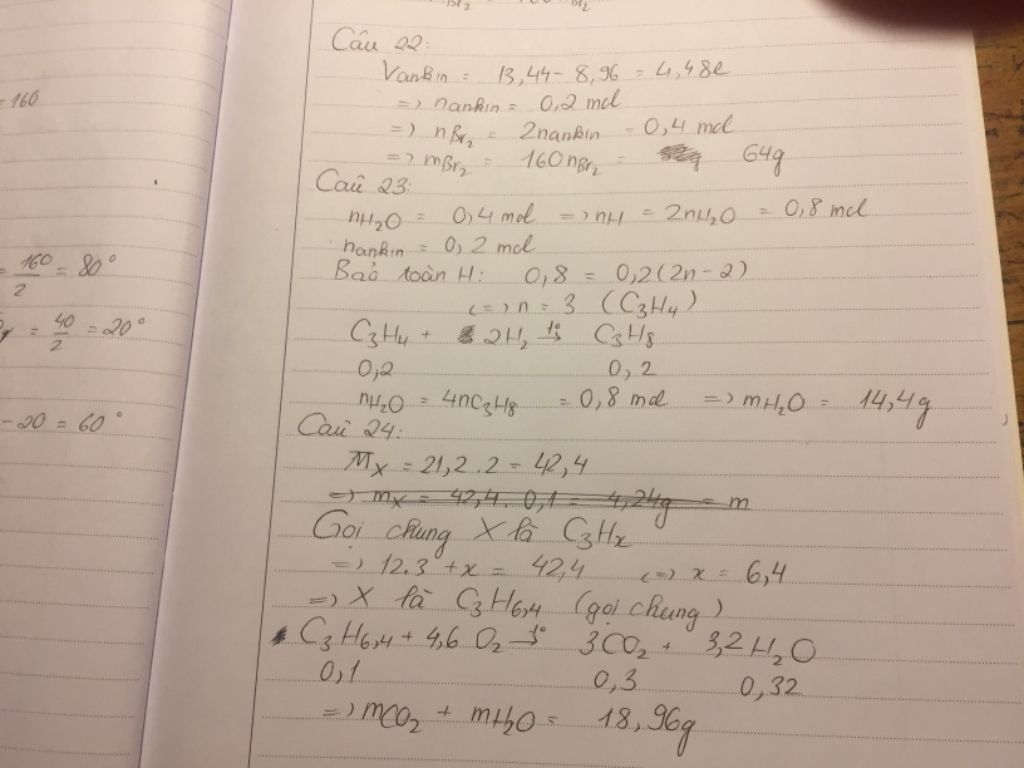 = 160
= 160/2 = 80°
= 40/2 = 20°
- 20 = 60°
Câu 22:
Vankin = 13,44 - 8,96 = 4,48l
=> nankin = 0,2 mol
=> nBr2 = 2nankin = 0,4 mol
=> mBr2 = 160nBr2 = 64g
Câu 23:
nH2O = 0,4 mol => nH = 2nH2O = 0,8 mol
nankin = 0,2 mol
Bảo toàn H: 0,8 = 0,2(2n-2)
<=> n = 3 (C3H4)
C3H4 + 2H2 t°→ C3H8
0,2 0,2
nH2O = 4nC3H8 = 0,8 mol => mH2O = 14,4g
Câu 24:
MX = 21,2 . 2 = 42,4
=> mX = 42,4 . 0,1 = 4,24g = m
Gọi chung X là C3Hx
=> 12.3 + x = 42,4 <=> x = 6,4
=> X là C3H6,4 (gọi chung)
C3H6,4 + 4,6 O2 t°→ 3CO2 + 3,2H2O
0,1 0,3 0,32
=> mCO2 + mH2O = 18,96g